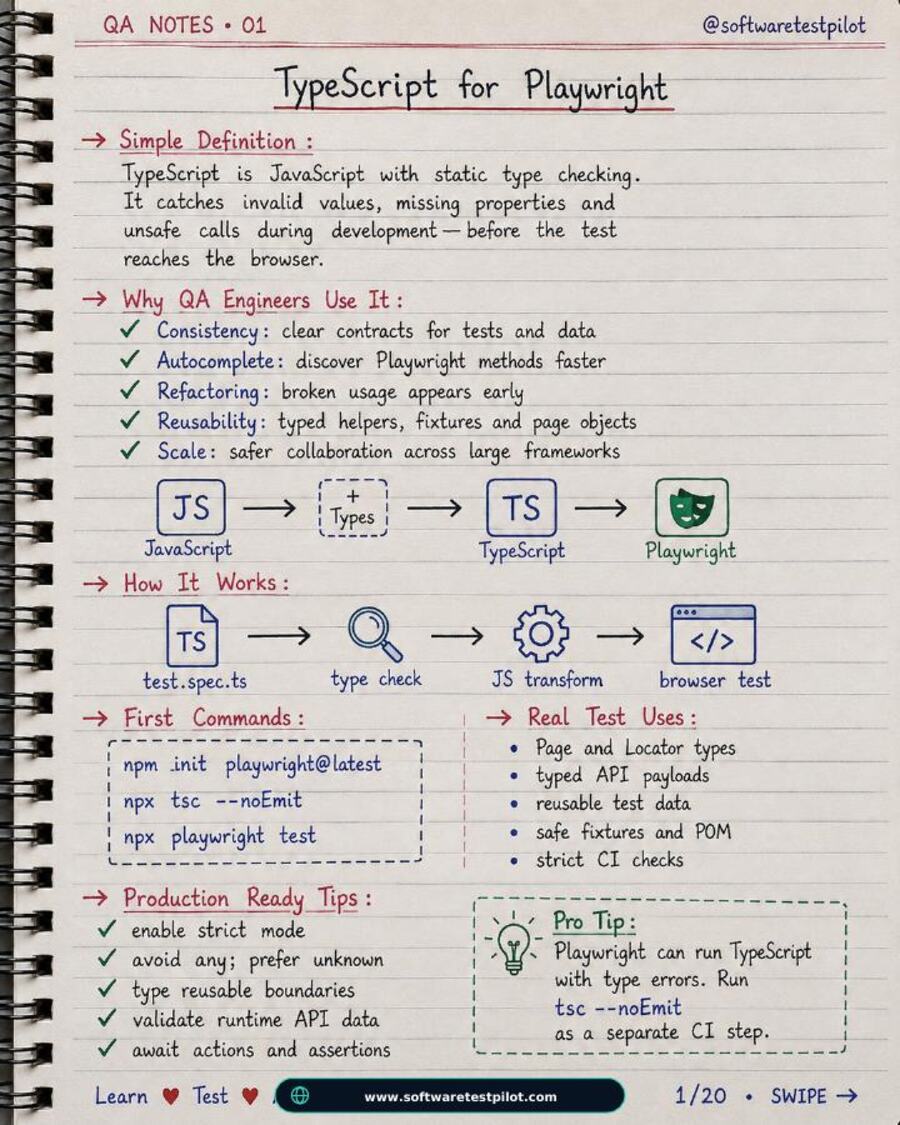 QA NOTES • 01
@softwaretestpilot
TypeScript for Playwright
→ Simple Definition :
TypeScript is JavaScript with static type checking.
It catches invalid values, missing properties and
unsafe calls during development — before the test
reaches the browser.
→ Why QA Engineers Use It :
✓ Consistency : clear contracts for tests and data
✓ Autocomplete : discover Playwright methods faster
✓ Refactoring : broken usage appears early
✓ Reusability : typed helpers, fixtures and page objects
✓ Scale : safer collaboration across large frameworks
JS → + Types → TS →
JavaScript TypeScript Playwright
→ How It Works :
TS → → → </>
test.spec.ts type check JS transform browser test
→ First Commands :
npm init playwright@latest
npx tsc --noEmit
npx playwright test
→ Real Test Uses :
• Page and Locator types
• typed API payloads
• reusable test data
• safe fixtures and POM
• strict CI checks
→ Production Ready Tips :
✓ enable strict mode
✓ avoid any; prefer unknown
✓ type reusable boundaries
✓ validate runtime API data
✓ await actions and assertions
Pro Tip :
Playwright can run TypeScript
with type errors. Run
tsc --noEmit
as a separate CI step.
Learn ♥ Test ♥
www.softwaretestpilot.com
1/20 • SWIPE →